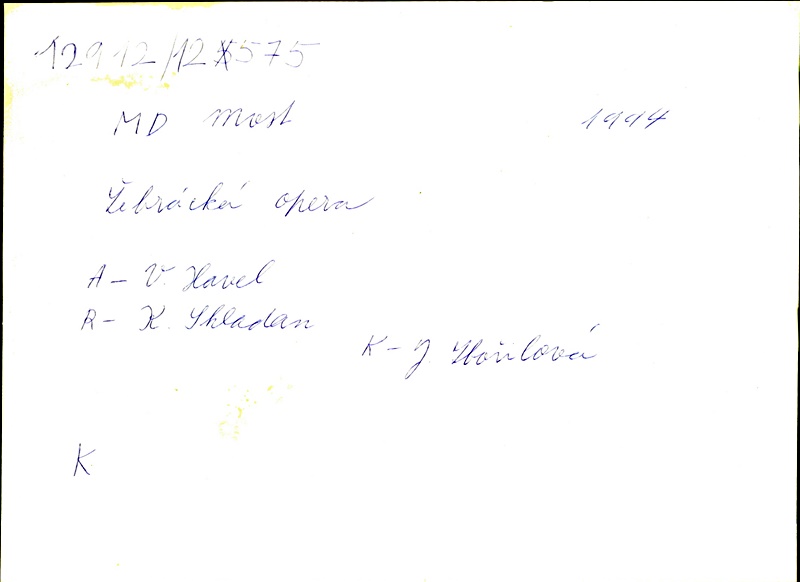 12912/12575
MD Most 1994
Žebrácká opera
A - V. Havel
R - K. Skladan
K - J.
K